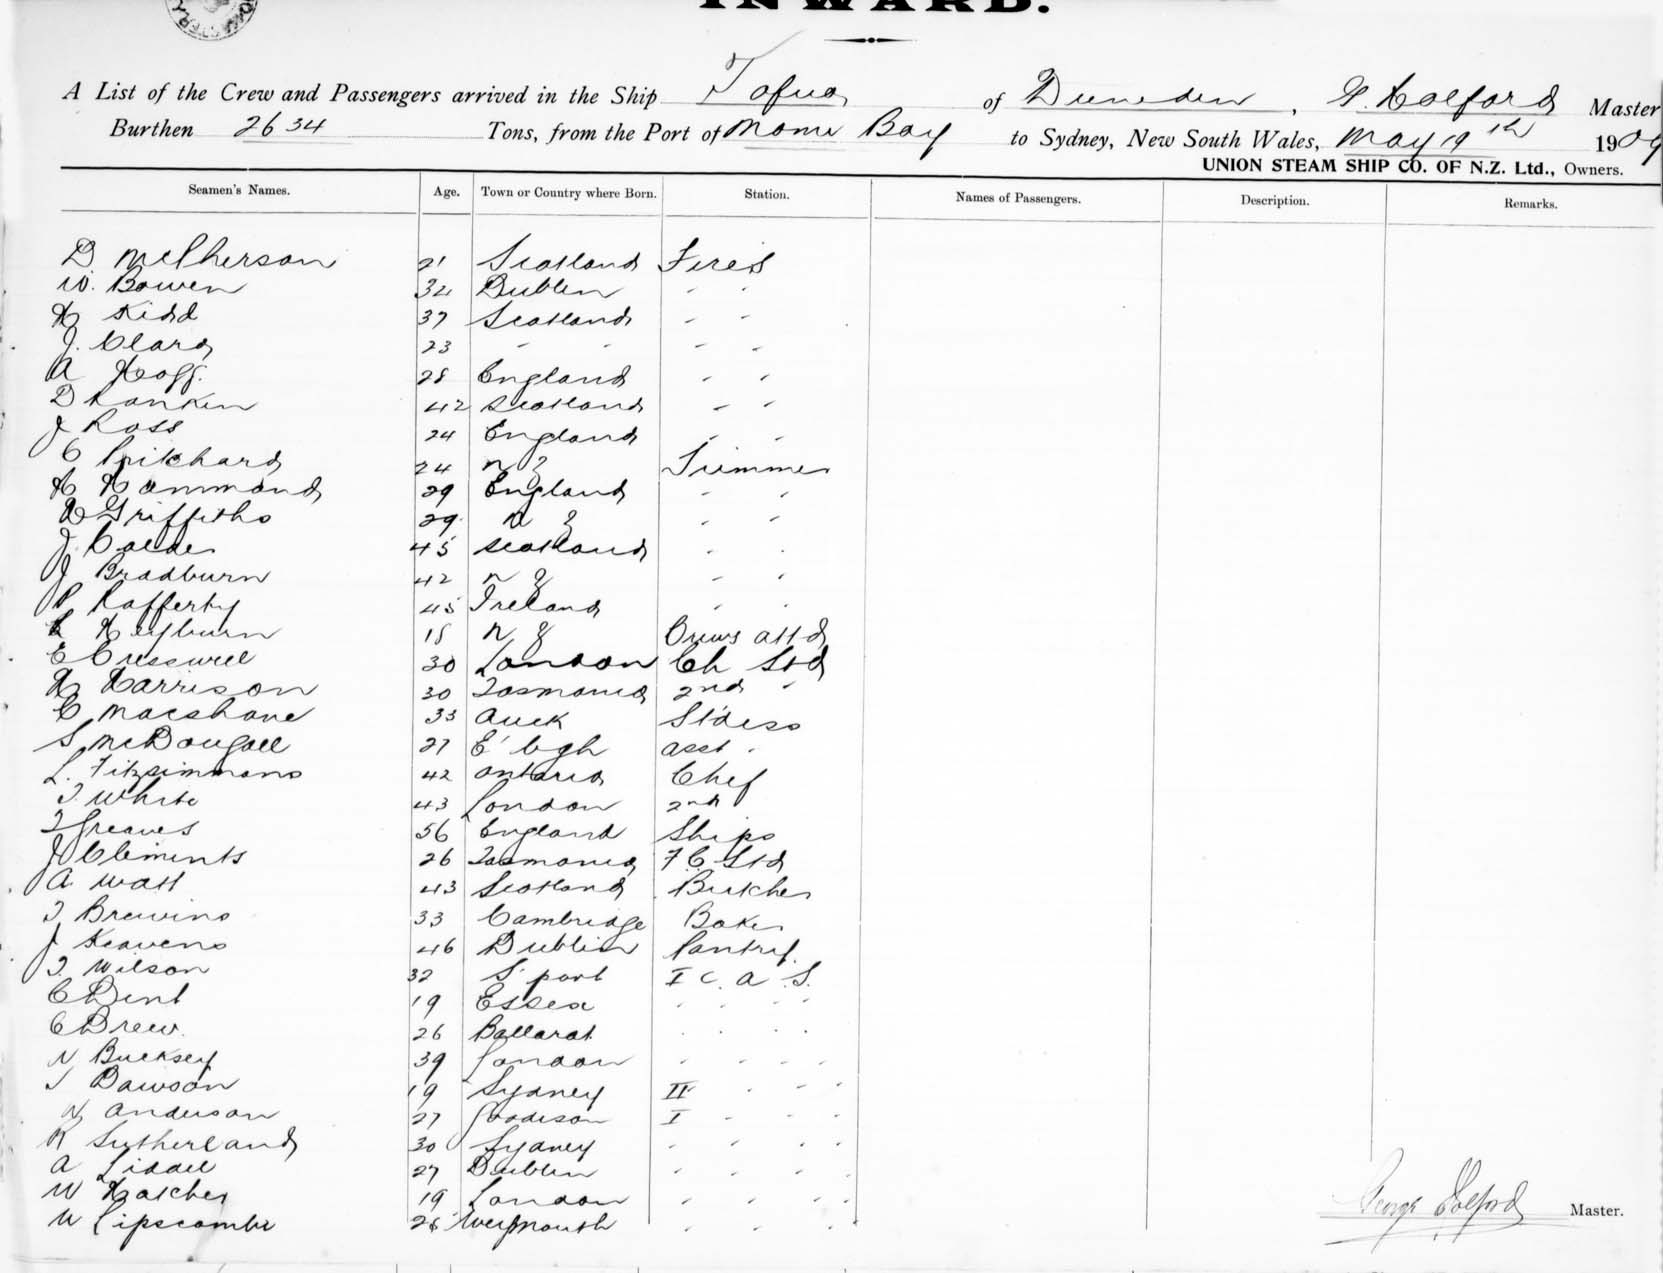 INWARD.
A List of the Crew and Passengers arrived in the Ship Tofua of Dunedin, G. Holford Master
Burthen 2634 Tons, from the Port of Momi Bay to Sydney, New South Wales, May 19th 1909
UNION STEAM SHIP CO. OF N.Z. Ltd., Owners.
Seamen's Names. Age. Town or Country where Born. Station. Names of Passengers. Description. Remarks.
D McPherson 21 Scotland Fires
W. Bowen 34 Dublin " "
H Kidd 37 Scotland " "
J. Clark 23 " " " "
A Hogg. 28 England " "
D Rankin 42 Scotland " "
J Ross 24 England " "
C Prichard 24 N Z Trimmer
H Hammond 29 England " "
H Griffiths 29 N Z " "
J. Calder 45 Scotland " "
J Bradburn 42 N Z " "
P Rafferty 45 Ireland " "
Heyburn 18 N Z Crews attd
E Cresswell 30 London Ch Std
H Harrison 30 Tasmania 2nd "
C MacShane 33 Auck St'dess
S McDougall 27 E'bgh asst "
L. Fitzsimmons 42 Ontario Chef
T. White 43 London 2nd
T Greaves 56 England Ships
J Clements 26 Tasmania F C Std
A Watt 43 Scotland Butcher
T Brewins 33 Cambridge Baker
J Keavens 46 Dublin Pantry.
T Wilson 32 S'port I C. A S.
C Dent 19 Essex " " " "
C Drew. 26 Ballarat " " " "
N Bucksey 39 London " " " "
J Dawson 19 Sydney II " " "
N Anderson 27 I " " "
R Sutherland 30 Sydney " " " "
A Liddell 27 Dublin " " " "
W Hatcher 19 London " " " "
W Lipscombe 26 Weymouth " " " "
George Holford Master.